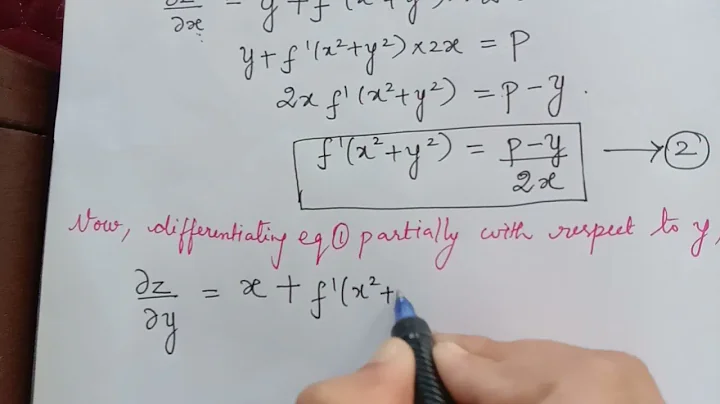 ∂z/∂x = y + f'(x² + y²)
y + f'(x² + y²) × 2x = P
2x f'(x² + y²) = P - y.
f'(x² + y²) = P - y / 2x → ②
Now, differentiating eq ① partially with respect to y,
∂z/∂y = x + f'(x² +